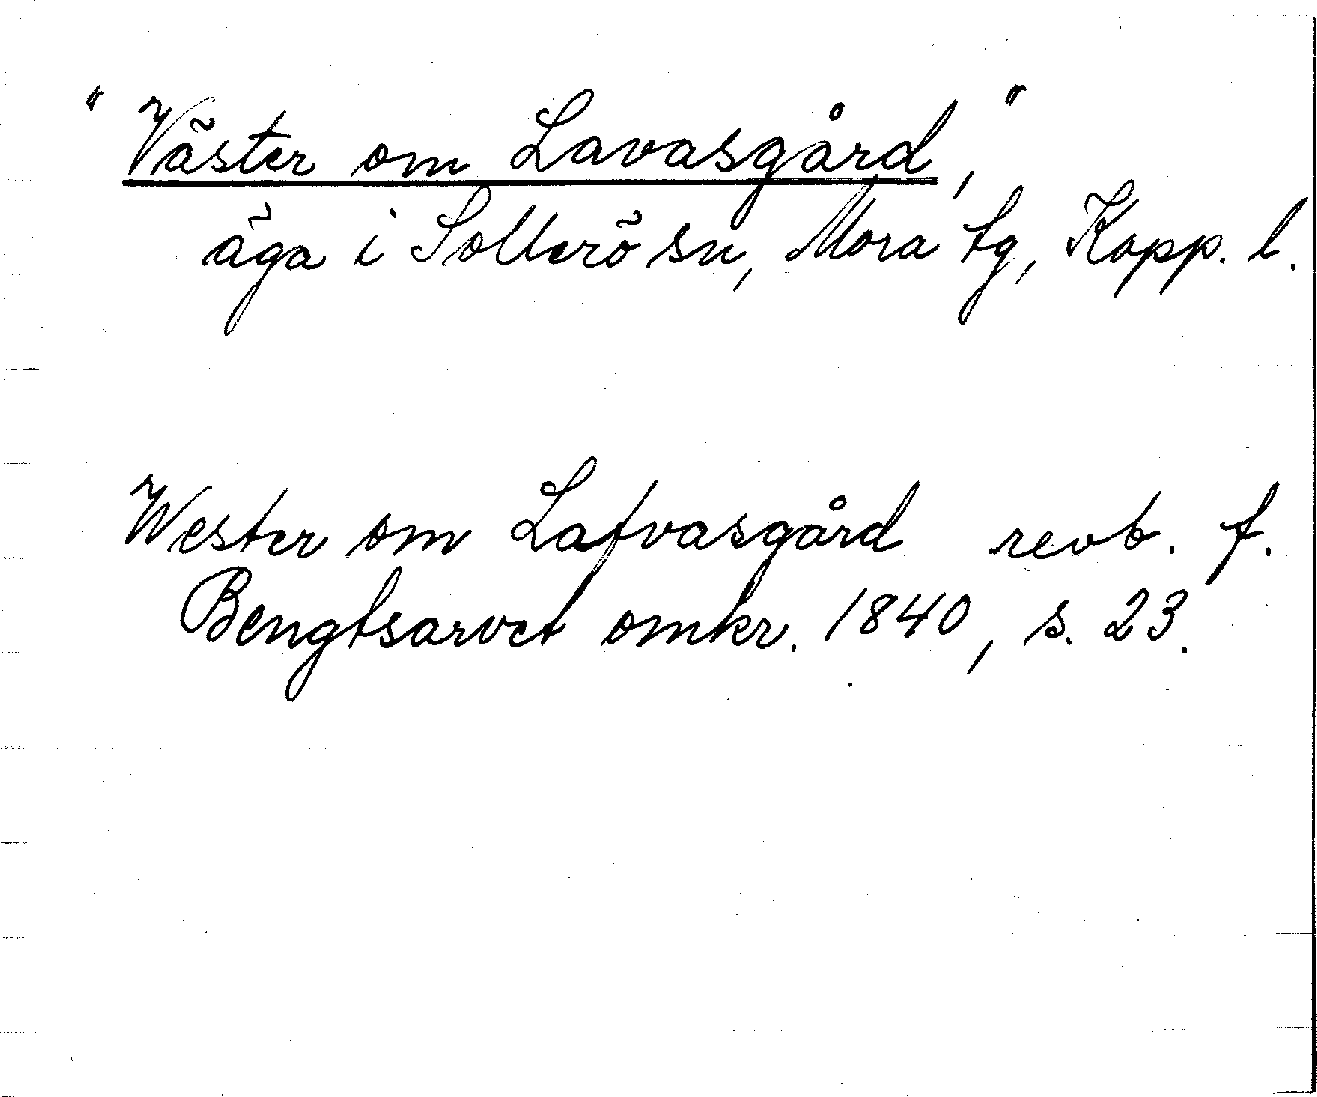 "Väster om Lavasgård,"
äga i Sollerö sn, Mora tg, Kopp. l.
Wester om Lafvasgård revb. f.
Bengtsarvet omkr. 1840, s. 23.